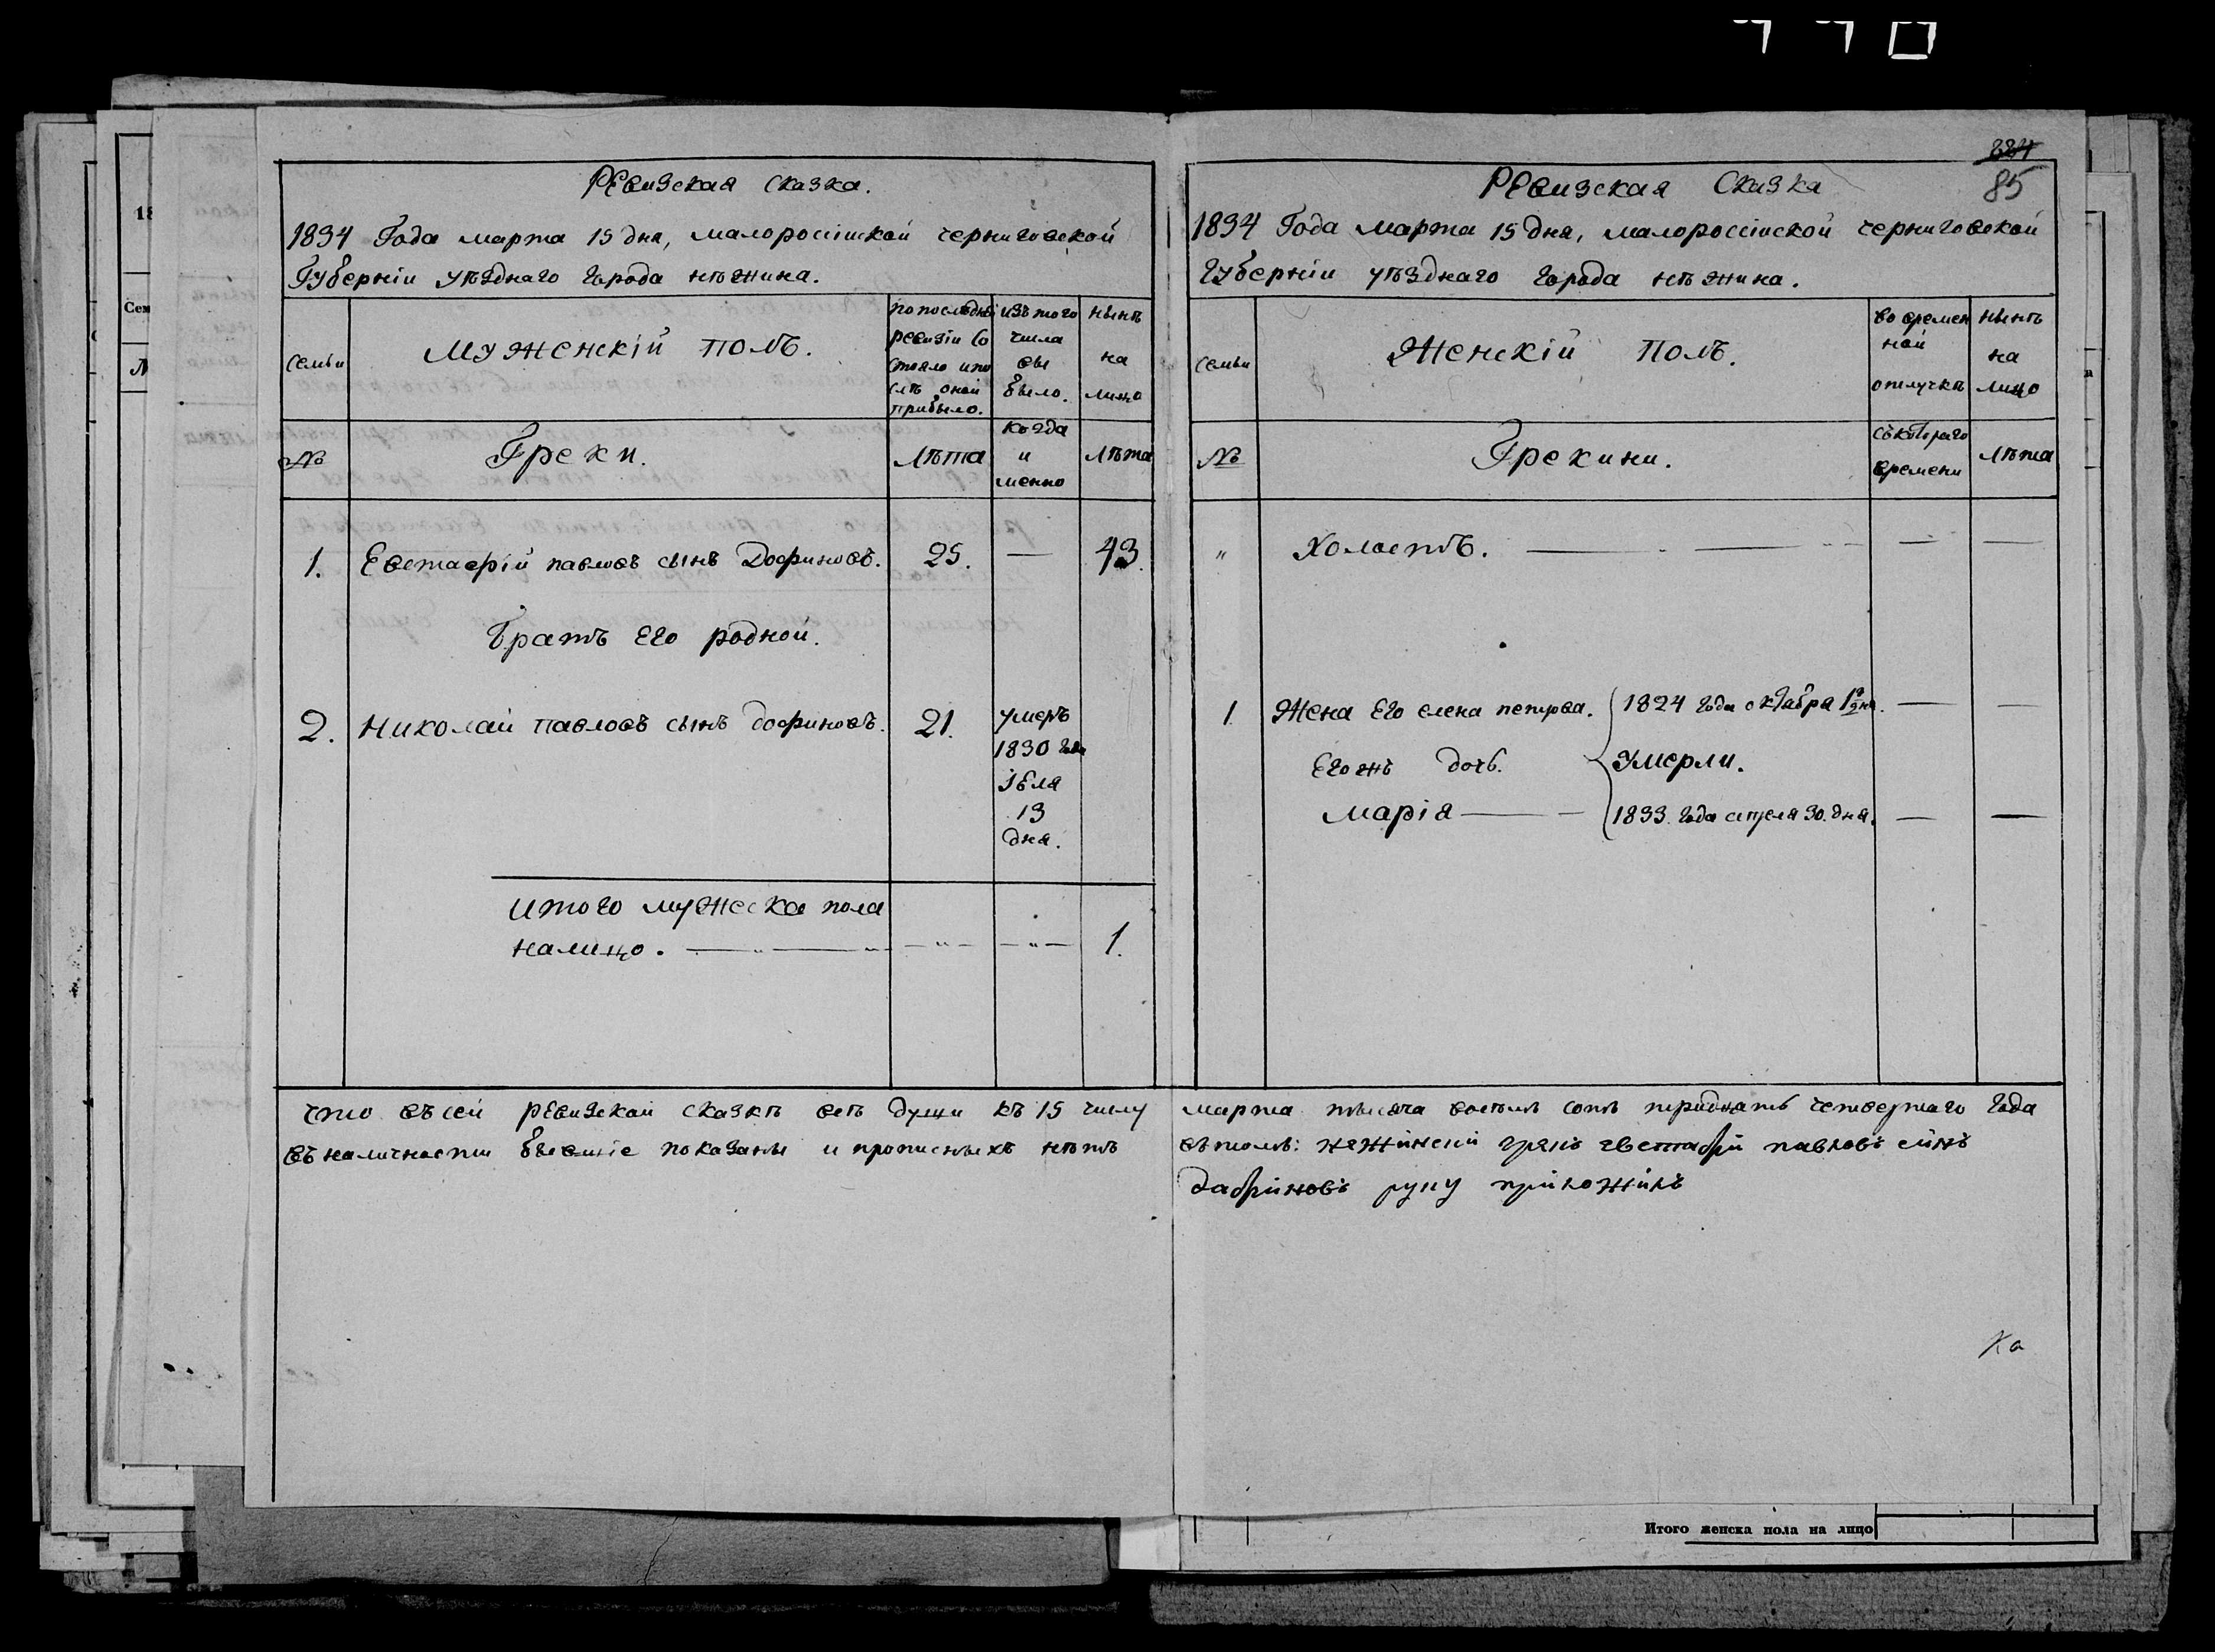 224
85
Ревизская Сказка.
1834 Года марта 15 дня, малороссійской черниговской
Губерніи уѣзднаго города нѣжина.
семьи
Мужескій полъ.
по последней
ревизіи со
стояло и по
слѣ оной
прибыло.
изъ того
числа
вы
было.
нынѣ
на
лицо
№
Греки.
Лѣта
когда
и
менно
Лѣта
1. Евстафій павловъ сынъ Дофиновъ. 25. — 43.
Братъ Его родной.
2. Николай павловъ сынъ дофиновъ. 21.
умеръ
1830 года
іюля
13
дня.
итого мужеска пола
налицо. 1.
что въ сей ревизской сказкѣ всѣ души къ 15 числу
въ наличности бывшіе показаны и прописныхъ нѣтъ
Ревизская Сказка
1834 Года марта 15 дня, малороссійской черниговской
Губерніи уѣзднаго города нѣжина.
семьи
Женскій Полъ.
во времен
ной
отлучкѣ
нынѣ
на
лицо
№
Грекини.
съ котораго
времени
Лѣта
" Холостъ. — — — —
1 Жена Его елена петрова. 1824 года октября 12 дня. — —
Его жъ дочь. Умерли.
марія — 1833. года апреля 30. дня. — —
марта тысяча восемь сотъ тридцать четвертаго Года
въ томъ: нежинскій грекъ евстафій павловъ синъ
дафиновъ руку приложилъ
Ка
18
Сем
Итого женска пола на лицо